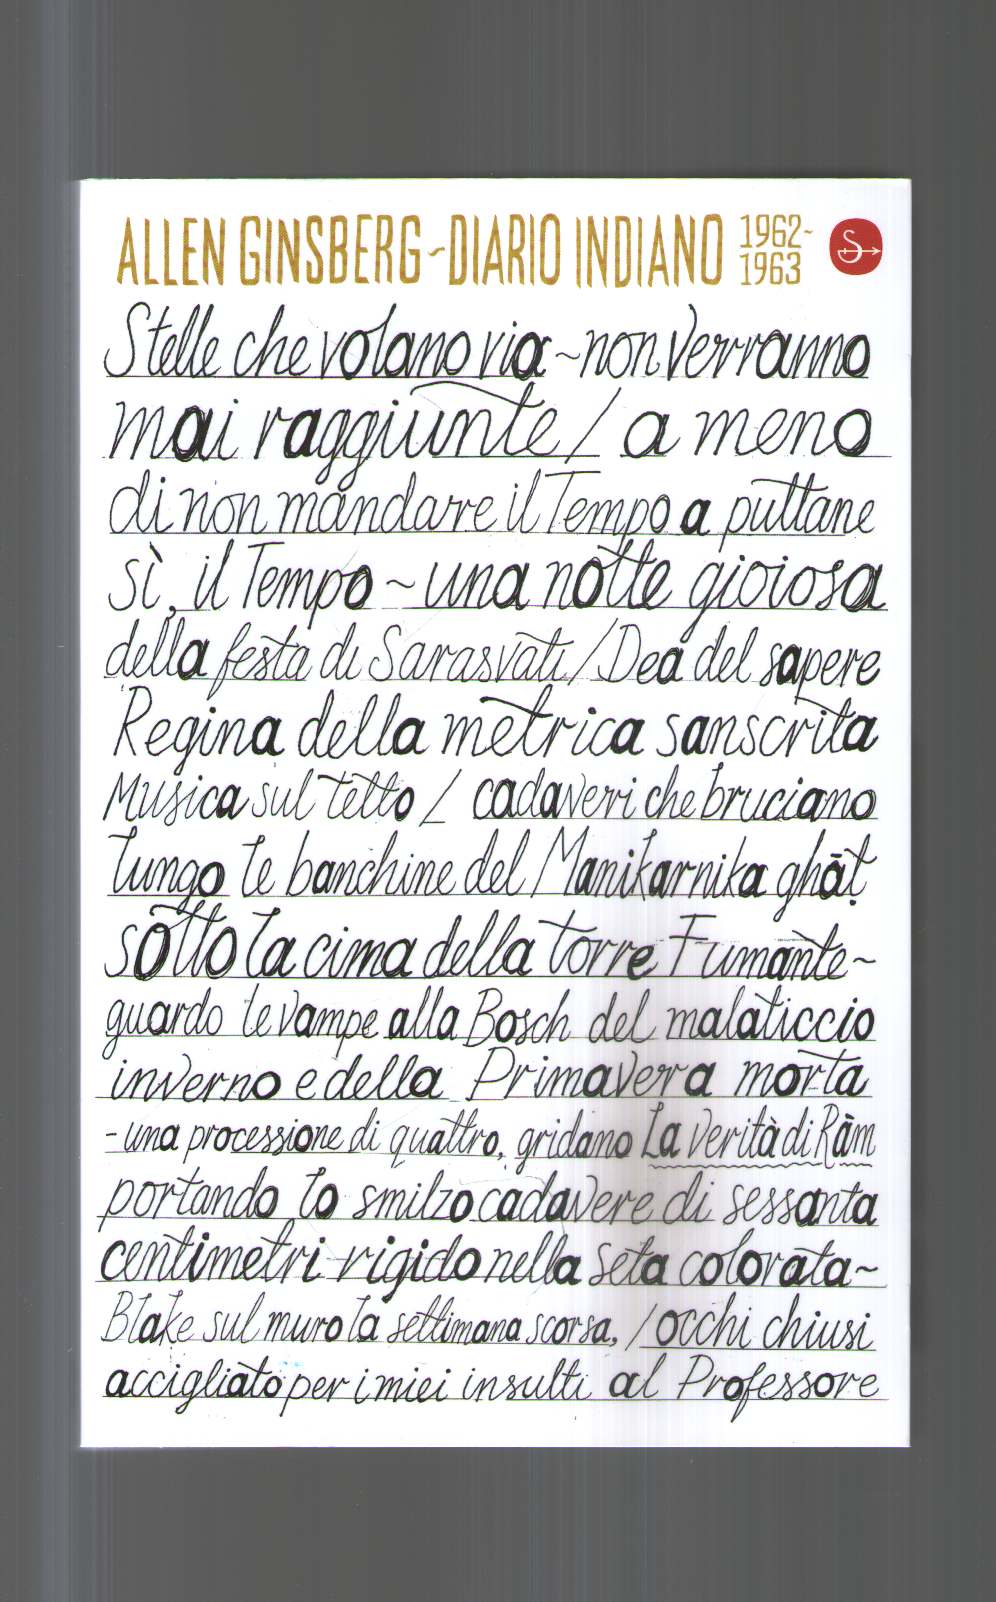 ALLEN GINSBERG ~ DIARIO INDIANO 1962~
1963
Stelle che volano via ~ non verranno
mai raggiunte / a meno
di non mandare il Tempo a puttane
sì, il Tempo ~ una notte gioiosa
della festa di Sarasvati / Dea del sapere
Regina della metrica sanscrita
Musica sul tetto / cadaveri che bruciano
lungo le banchine del Manikarnika ghāṭ
sotto la cima della torre Fumante ~
guardo le vampe alla Bosch del malaticcio
inverno e della Primavera morta
- una processione di quattro, gridano La verità di Rām
portando lo smilzo cadavere di sessanta
centimetri rigido nella seta colorata ~
Blake sul muro la settimana scorsa, / occhi chiusi
accigliato per i miei insulti al Professore